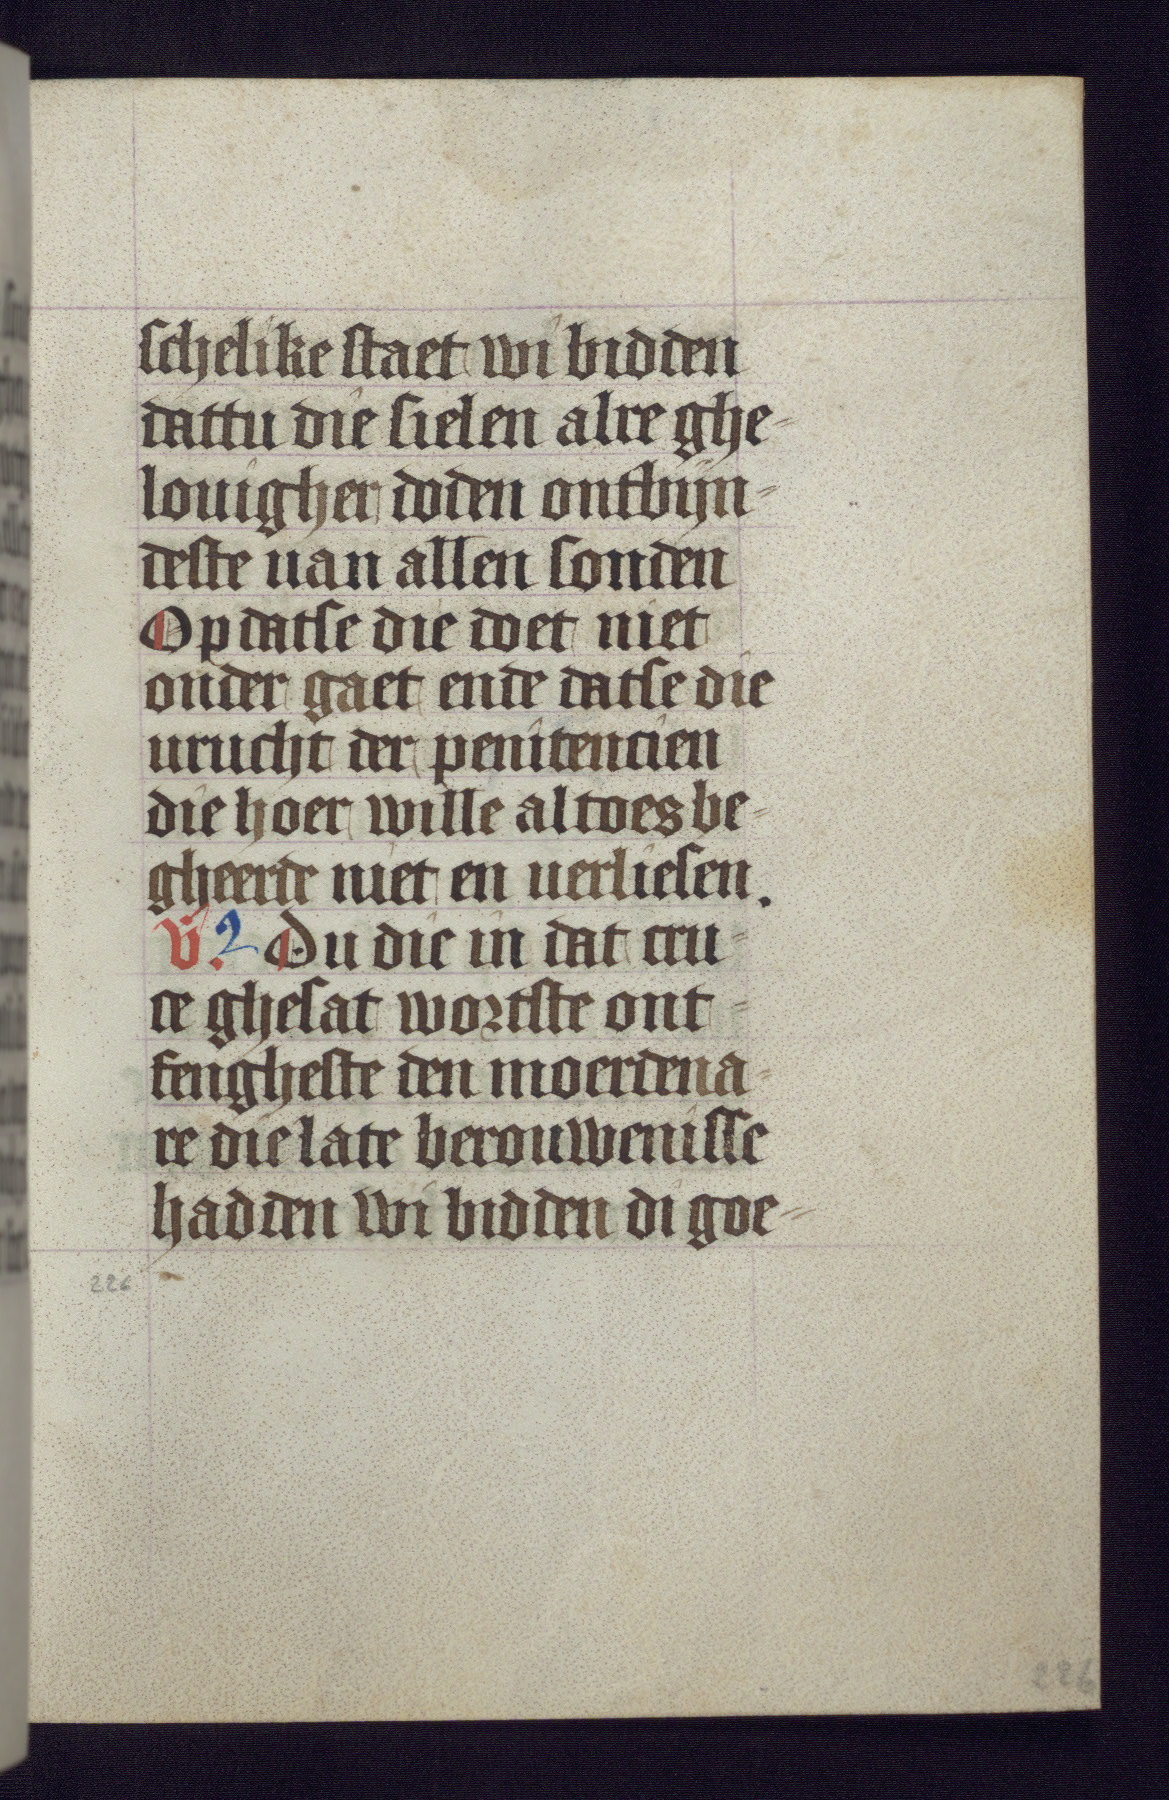 schelike staet wi bidden
dattu die sielen alre ghe-
louigher doden ontbijn-
deste uan allen sonden
Op datse die doet niet
onder gaet ende datse die
urucht der penitencien
die hoer wille altoes be-
gheerde niet en uerliesen.
V. 2 Du die in dat cru-
ce ghesat wortste ont-
fengheste den moerdena-
re die late berouwenisse
hadden wi bidden di goe-
226
226